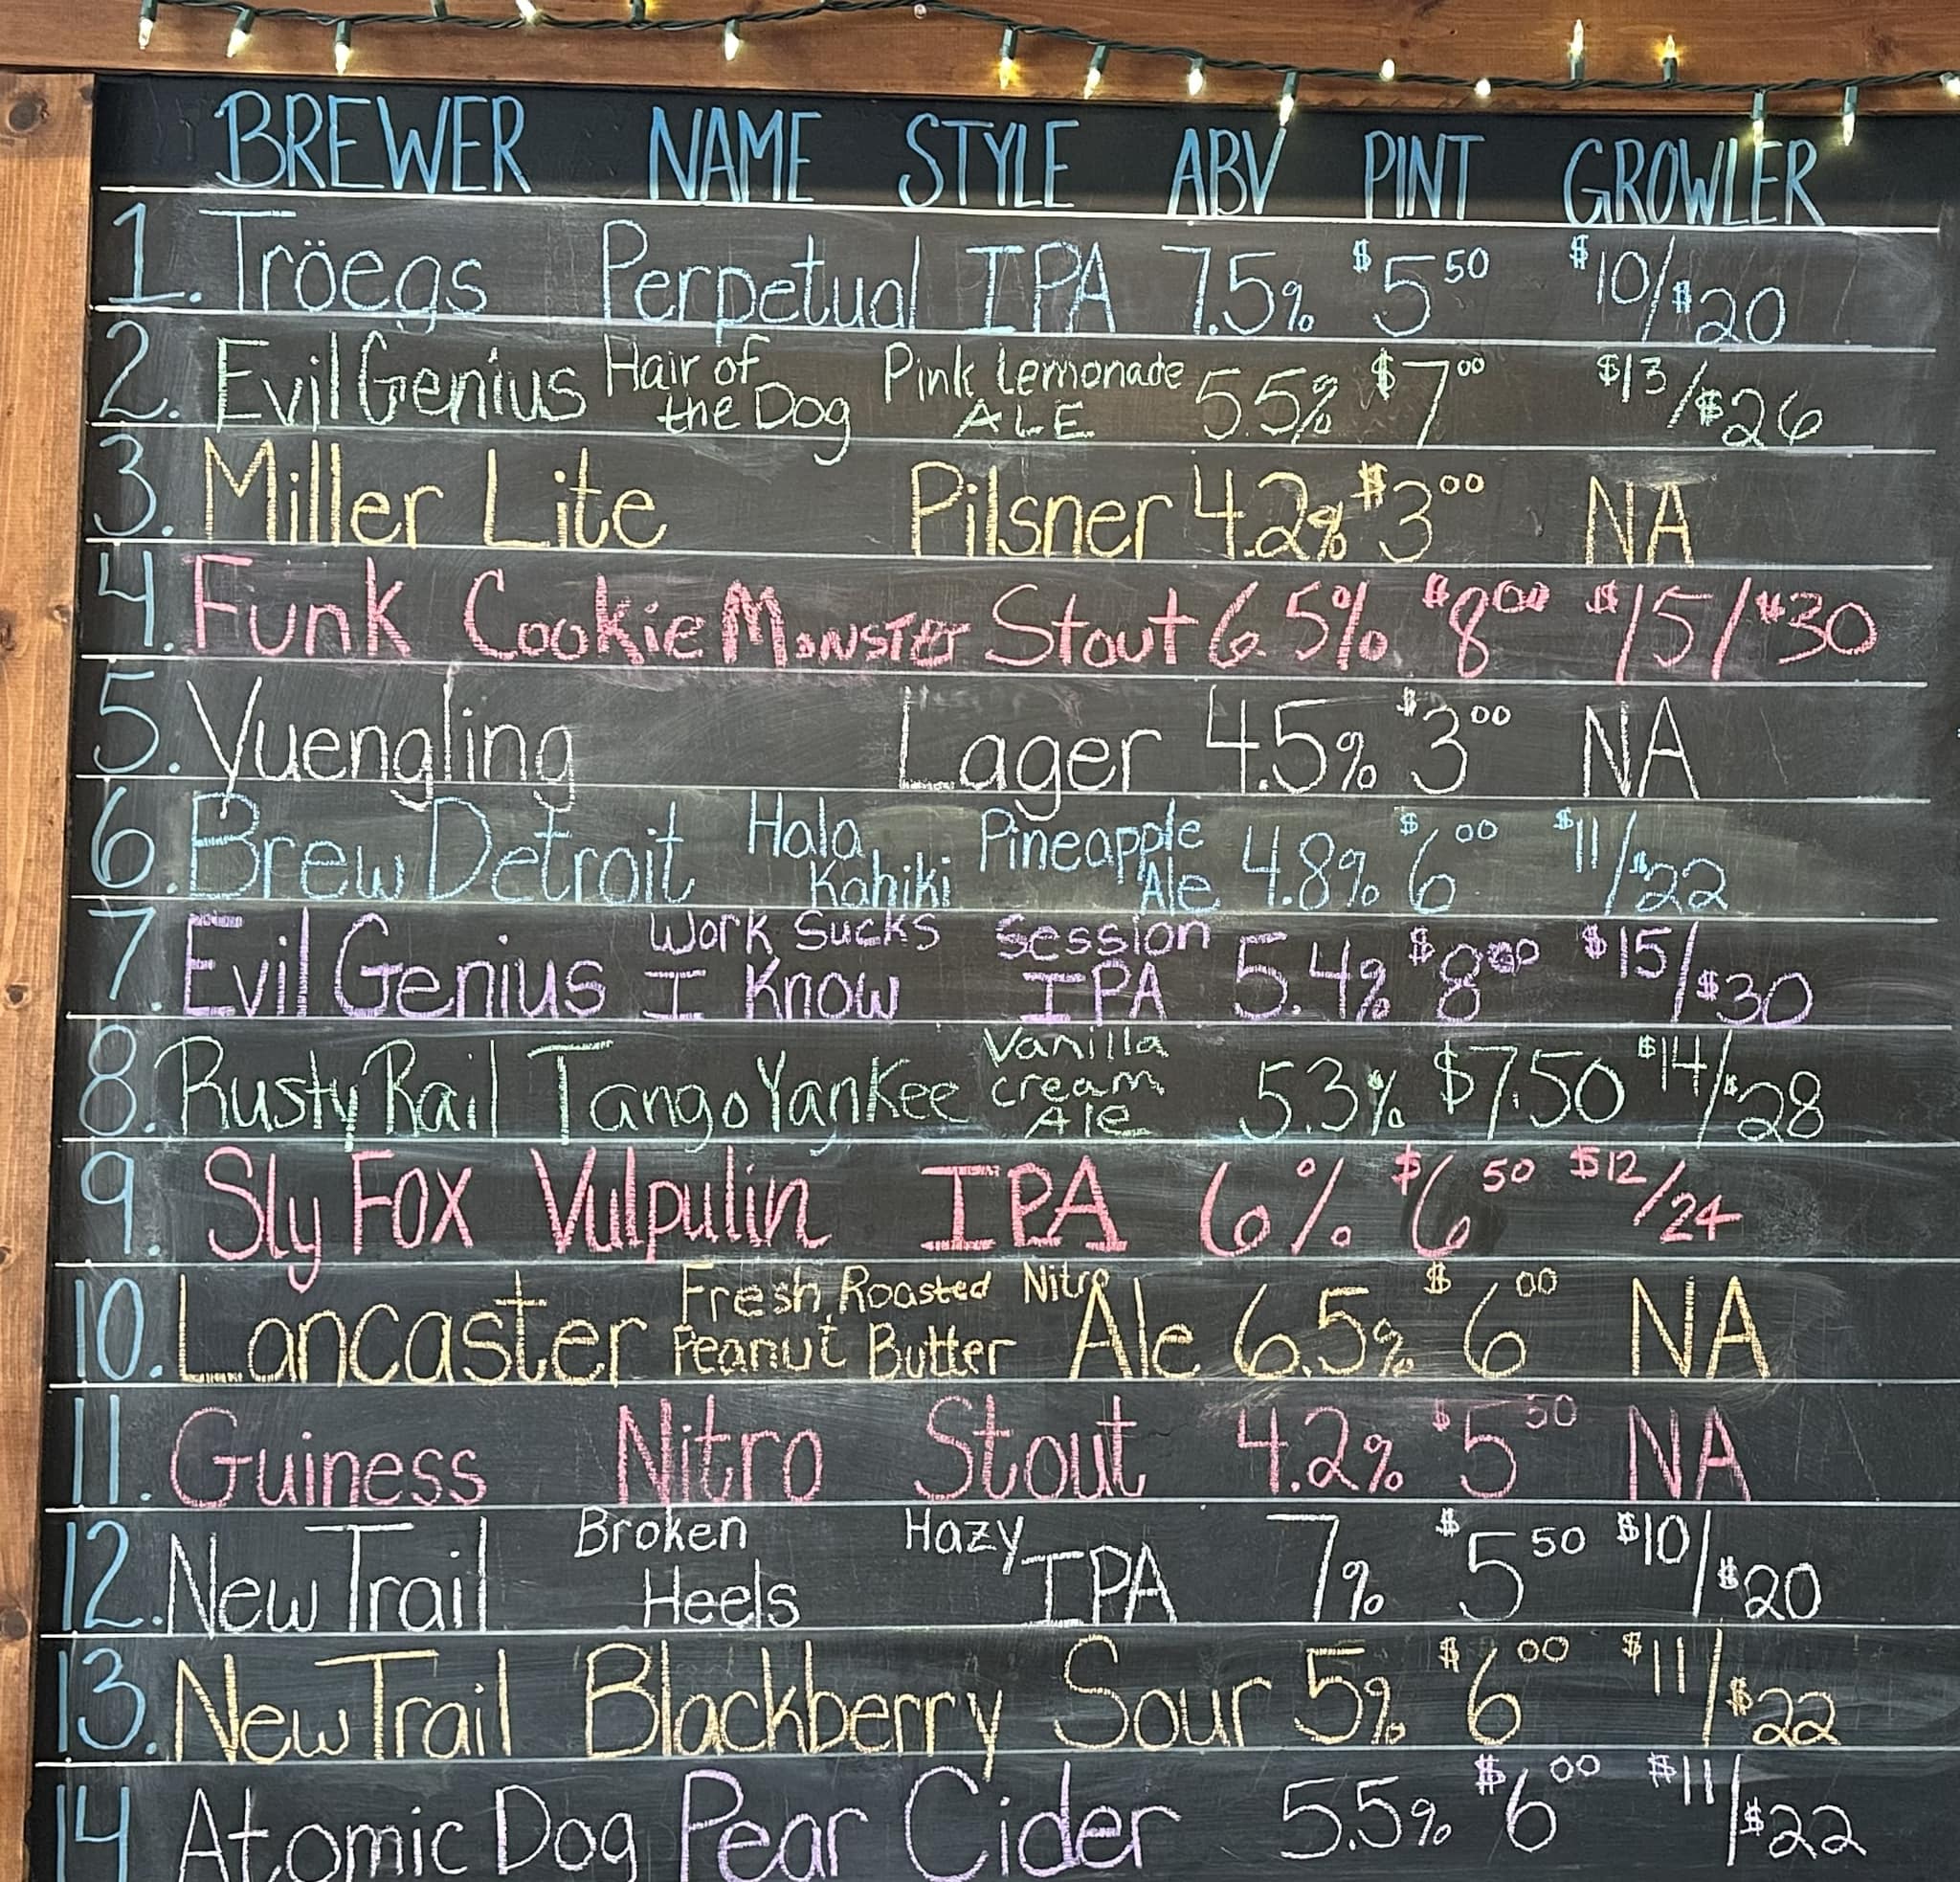 BREWER NAME STYLE ABV PINT GROWLER
1. Tröegs Perpetual IPA 7.5% $5 50 $10/$20
2. Evil Genius Hair of the Dog Pink Lemonade ALE 5.5% $7 00 $13/$26
3. Miller Lite Pilsner 4.2% $3 00 NA
4. Funk Cookie Monster Stout 6.5% $8 00 $15/$30
5. Yuengling Lager 4.5% $3 00 NA
6. Brew Detroit Hala Kahiki Pineapple Ale 4.8% $6 00 $11/$22
7. Evil Genius Work Sucks I Know Session IPA 5.4% $8 00 $15/$30
8. Rusty Rail Tango Yankee Vanilla cream Ale 5.3% $7.50 $14/$28
9. Sly Fox Vulpulin IPA 6% $6 50 $12/24
10. Lancaster Fresh Roasted Peanut Butter Nitro Ale 6.5% $6 00 NA
11. Guiness Nitro Stout 4.2% $5 50 NA
12. New Trail Broken Heels Hazy IPA 7% $5 50 $10/$20
13. New Trail Blackberry Sour 5% $6 00 $11/$22
14 Atomic Dog Pear Cider 5.5% $6 00 $11/$22